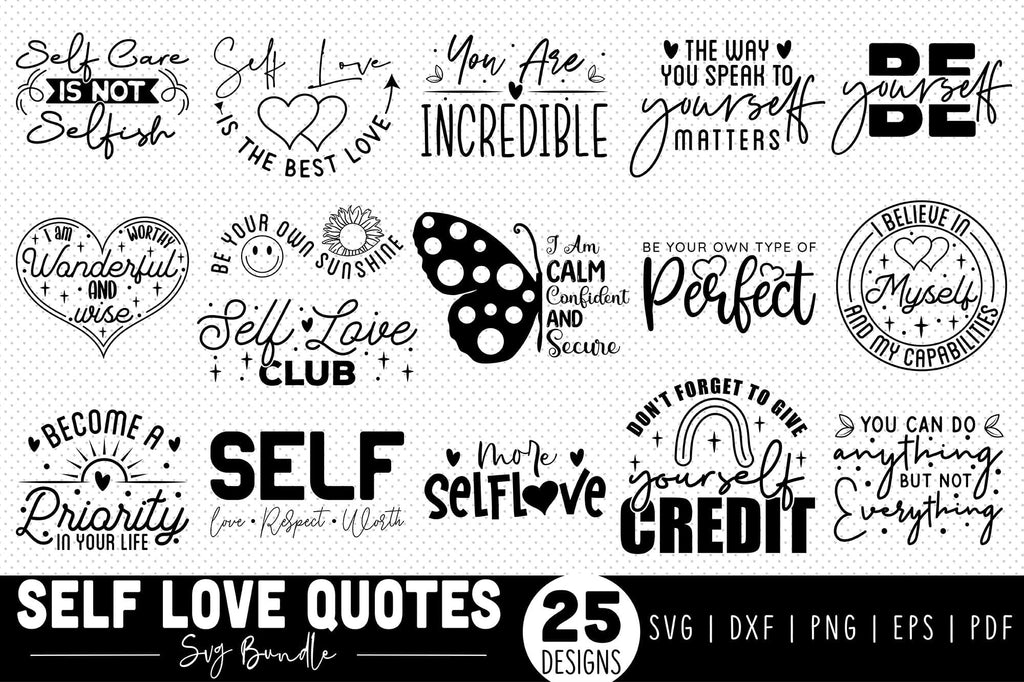 Self Care
IS NOT
Selfish
Self Love
IS THE BEST LOVE
You Are
INCREDIBLE
THE WAY
YOU SPEAK TO
yourself
MATTERS
BE
yourself
BE
I am WORTHY
Wonderful
AND
wise
BE YOUR OWN SUNSHINE
Self Love
CLUB
I Am
CALM
Confident
AND
Secure
BE YOUR OWN TYPE OF
Perfect
I BELIEVE IN
Myself
AND MY CAPABILITIES
BECOME A
Priority
IN YOUR LIFE
SELF
love • Respect • Worth
more
selflove
DON'T FORGET TO GIVE
yourself
CREDIT
YOU CAN DO
anything
BUT NOT
Everything
SELF LOVE QUOTES
Svg Bundle
25
DESIGNS
SVG | DXF | PNG | EPS | PDF